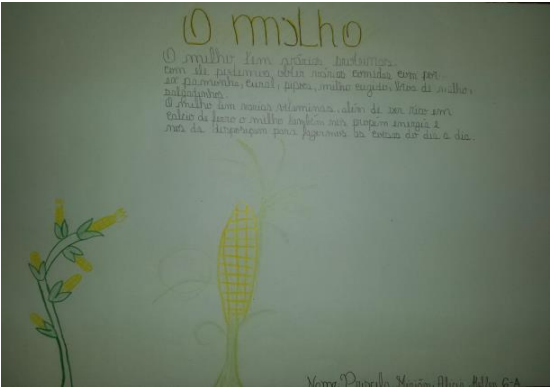 O milho
O milho tem várias
com ele podemos obter várias comidas com por
ser pamonha, cural, pipoca, milho cozido, bolos de milho,
salgadinhos.
O milho tem varias vitaminas, além de ser rico em
calcio de ferro o milho também nos propõem energia e
nos da disposiçam para fazermos as coisas do dia a dia.
Nome: Priscila 6ºA